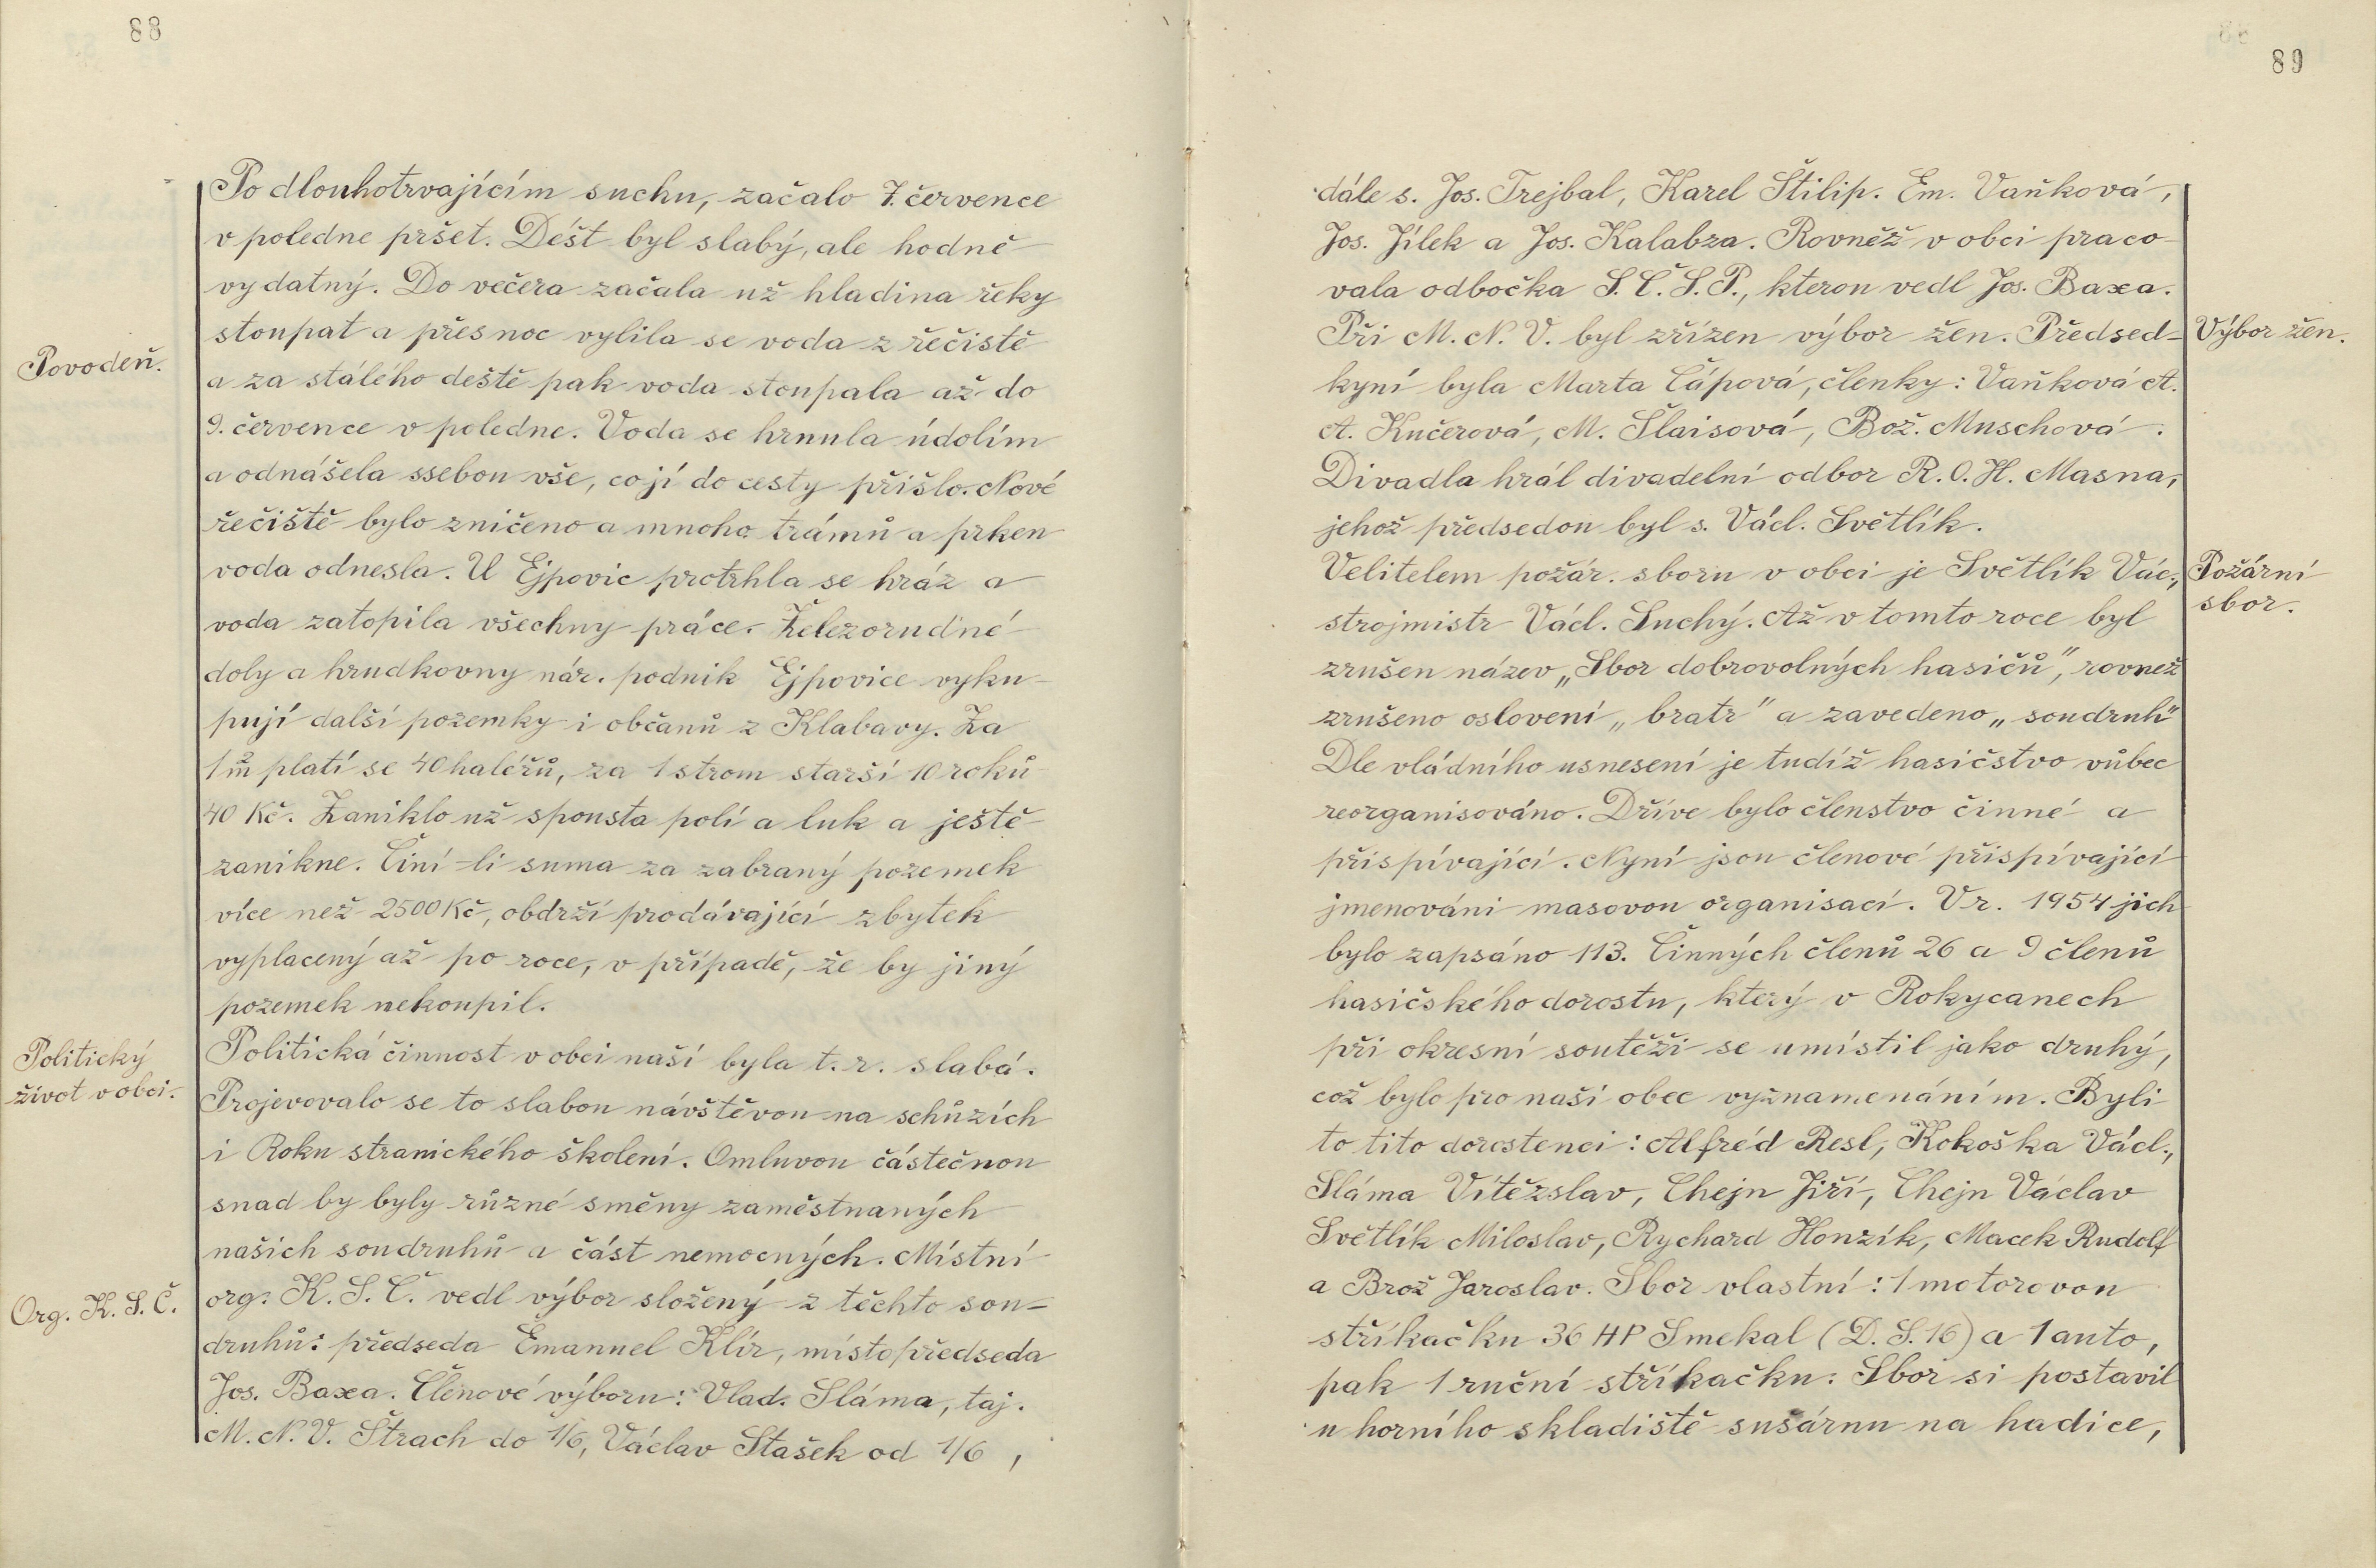 88
Po dlouhotrvajícím suchu, začalo 7. července
v poledne pršet. Déšt byl slabý, ale hodně
vydatný. Do večera začala už hladina řeky
stoupat a přes noc vylila se voda z řečiště
Povodeň.
a za stálého deště pak voda stoupala až do
9. července v poledne. Voda se hrnula údolím
a odnášela ssebou vše, co jí do cesty přišlo. Nové
řečiště bylo zničeno a mnoho trámů a prken
voda odnesla. U Ejpovic protrhla se hráz a
voda zatopila všechny práce. Železorudné
doly a hrudkovny nár. podnik Ejpovice vyku-
pují další pozemky i občanů z Klabavy. Za
1 m² platí se 40 haléřů, za 1 strom starší 10 roků
40 Kč. Zaniklo už spousta polí a luk a ještě
zanikne. Činí-li suma za zabraný pozemek
více než 2500 Kč, obdrží prodávající zbytek
vyplacený až po roce, v případě, že by jiný
pozemek nekoupil.
Politický
život v obci.
Politická činnost v obci naší byla t. r. slabá.
Projevovalo se to slabou návštěvou na schůzích
i Roku stranického školení. Omluvou částečnou
snad by byly různé směny zaměstnaných
našich soudruhů a část nemocných. Místní
Org. K. S. Č.
org. K. S. Č. vedl výbor složený z těchto sou-
druhů: předseda Emanuel Klír, místopředseda
Jos. Baxa. Členové výboru: Vlad. Sláma, taj.
M. N. V. Štrach do 1/6, Václav Stašek od 1/6,
89
dále s. Jos. Trejbal, Karel Štilip. Em. Vaňková,
Jos. Jílek a Jos. Kalabza. Rovněž v obci praco-
vala odbočka S. Č. S. P., kterou vedl Jos. Baxa.
Při M. N. V. byl zřízen výbor žen. Předsed-
Výbor žen.
kyní byla Marta Čápová, členky: Vaňková A.
A. Kučerová, M. Šlaisová, Bož. Muschová.
Divadla hrál divadelní odbor R. O. H. Masna,
jehož předsedou byl s. Václ. Světlík.
Velitelem požár. sboru v obci je Světlík Vác.,
Požární
sbor.
strojmistr Václ. Suchý. Až v tomto roce byl
zrušen název „Sbor dobrovolných hasičů", rovnež
zrušeno oslovení „bratr" a zavedeno „soudruh"
Dle vládního usnesení je tudíž hasičstvo vůbec
reorganisováno. Dříve bylo členstvo činné a
přispívající. Nyní jsou členové přispívající
jmenováni masovou organisací. V r. 1954 jich
bylo zapsáno 113. Činných členů 26 a 9 členů
hasičského dorostu, který v Rokycanech
při okresní soutěži se umístil jako druhý,
což bylo pro naší obec vyznamenáním. Byli
to tito dorostenci: Alfréd Resl, Kokoška Václ.,
Sláma Vítězslav, Chejn Jiří, Chejn Václav
Světlík Miloslav, Rychard Honzík, Macek Rudolf
a Brož Jaroslav. Sbor vlastní: 1 motorovou
stříkačku 36 HP Smekal (D. S. 16) a 1 auto,
pak 1 ruční stříkačku. Sbor si postavil
u horního skladiště sušárnu na hadice,